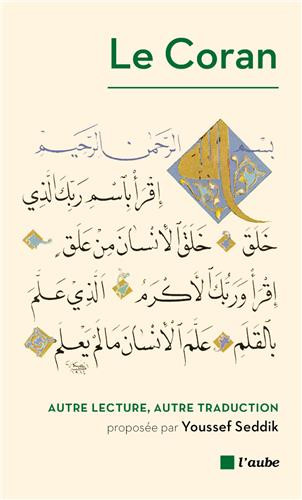 Le Coran
بسم الله الرحمن الرحيم
اِقْرَأْ بِاسْمِ رَبِّكَ الَّذِي
خَلَقَ خَلَقَ الْاِنْسَانَ مِنْ عَلَقٍ
اِقْرَأْ وَرَبُّكَ الْاَكْرَمُ الَّذِي عَلَّمَ
بِالْقَلَمِ عَلَّمَ الْاِنْسَانَ مَا لَمْ يَعْلَمْ
AUTRE LECTURE, AUTRE TRADUCTION
proposée par Youssef Seddik
l'aube